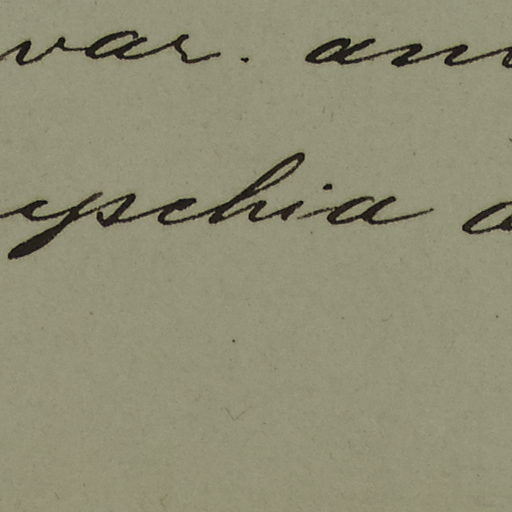 var. an
yschia a